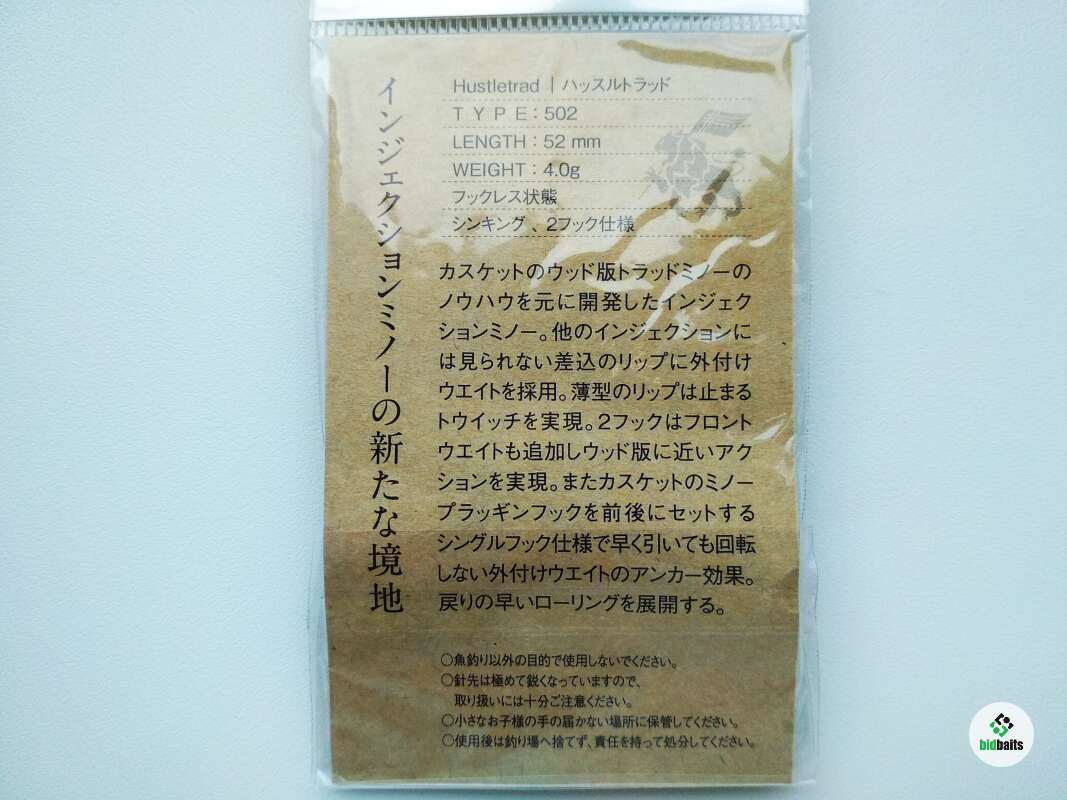 インジェクションミノーの新たな境地
Hustletrad | ハッスルトラッド
TYPE：502
LENGTH：52 mm
WEIGHT：4.0g
フックレス状態
シンキング、2フック仕様
カスケットのウッド版トラッドミノーの
ノウハウを元に開発したインジェク
ションミノー。他のインジェクションに
は見られない差込のリップに外付け
ウエイトを採用。薄型のリップは止まる
トウイッチを実現。2フックはフロント
ウエイトも追加しウッド版に近いアク
ションを実現。またカスケットのミノー
プラッギンフックを前後にセットする
シングルフック仕様で早く引いても回転
しない外付けウエイトのアンカー効果。
戻りの早いローリングを展開する。
○魚釣り以外の目的で使用しないでください。
○針先は極めて鋭くなっていますので、
取り扱いには十分ご注意ください。
○小さなお子様の手の届かない場所に保管してください。
○使用後は釣り場へ捨てず、責任を持って処分してください。
bidbaits